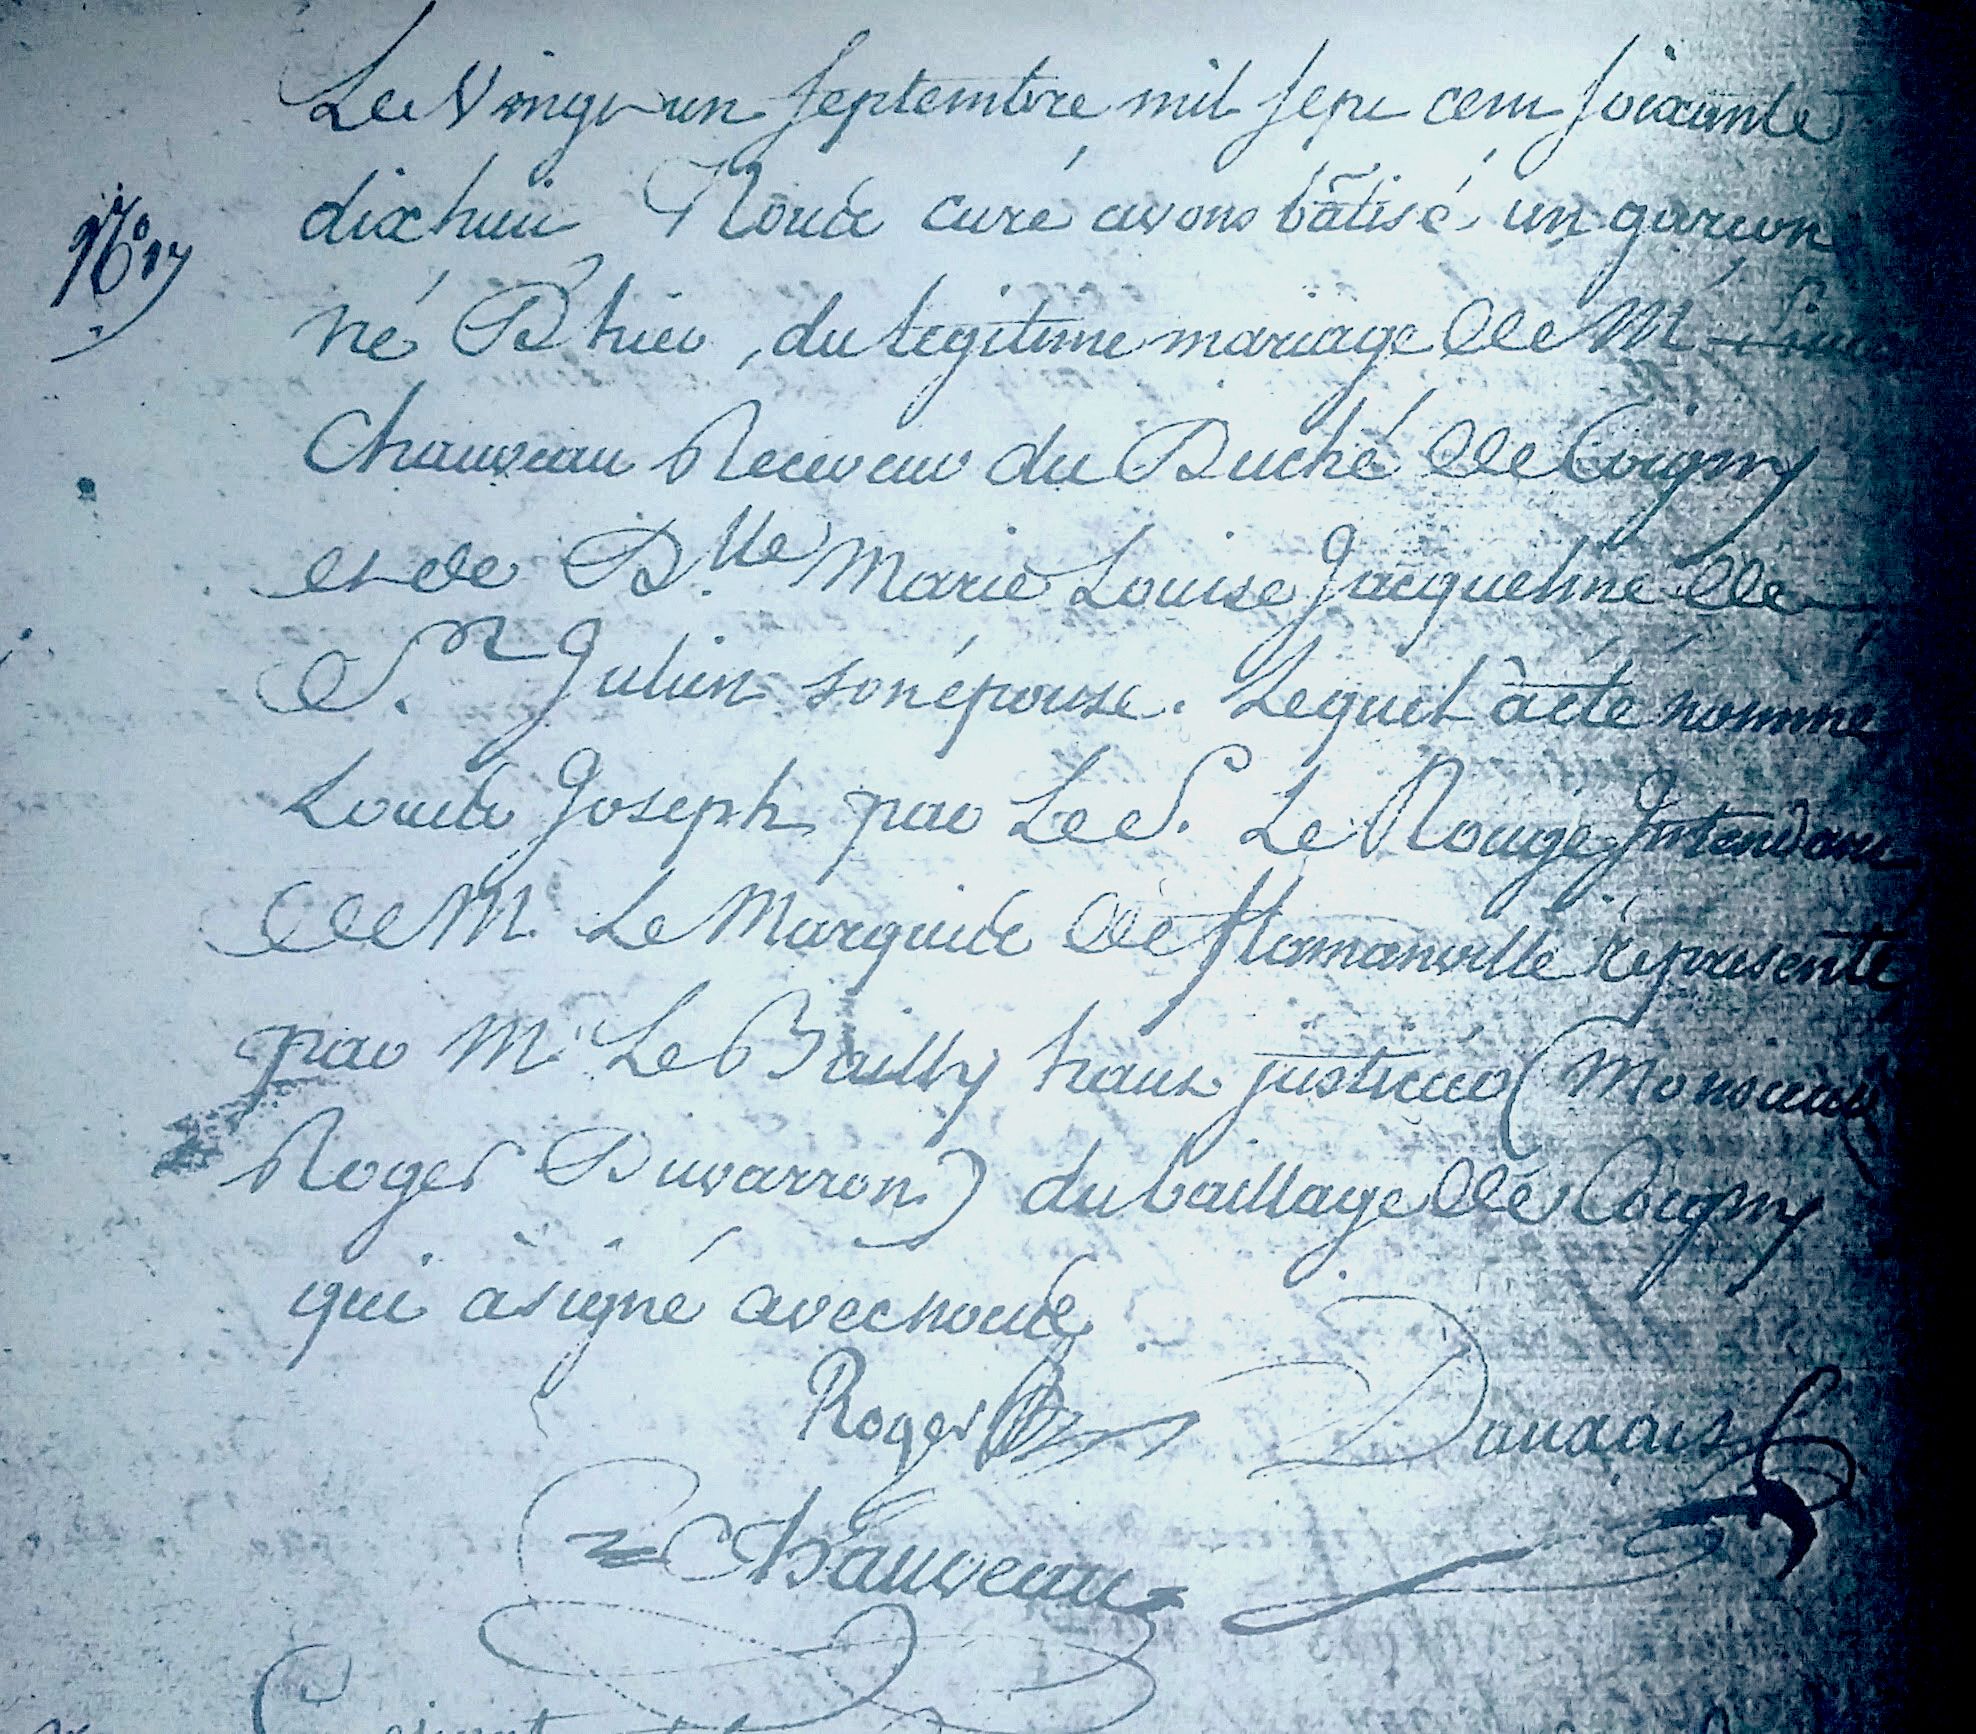 Le Vingt un septembre mil sept cent soixante
dixhuit Nous curé avons bâtisé un garçon
N° 17
né D'hier, du legitime mariage de Mr
Chauveau Receveur du Duché de Coigny
et de Dlle Marie Louise Jacqueline de
St Julien son épouse. Lequel à été nommé
Louis Joseph par Le S. Le Rouge Intendant
de M. Le Marquis de flamanville représenté
par Mr Le Bailly haut justicier (Monsieur
Roger Duvarron) du baillage de Coigny
qui a signé avec nous
Roger Dauxais
Chauveau